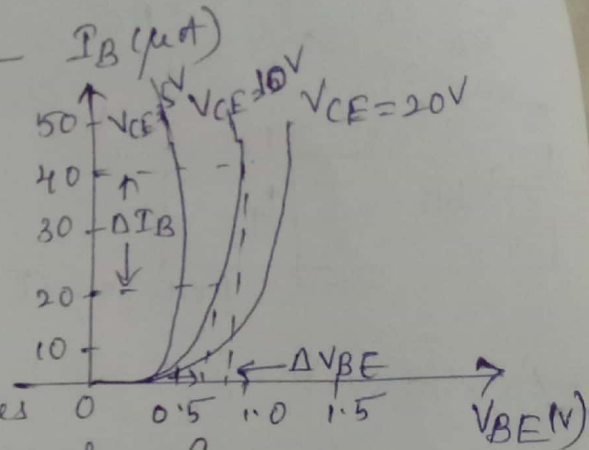 I_B (μA)
V_CE = 5V V_CE = 10V V_CE = 20V
50
40
30 ΔI_B
20
10
ΔV_BE
es 0 0.5 1.0 1.5 V_BE (V)